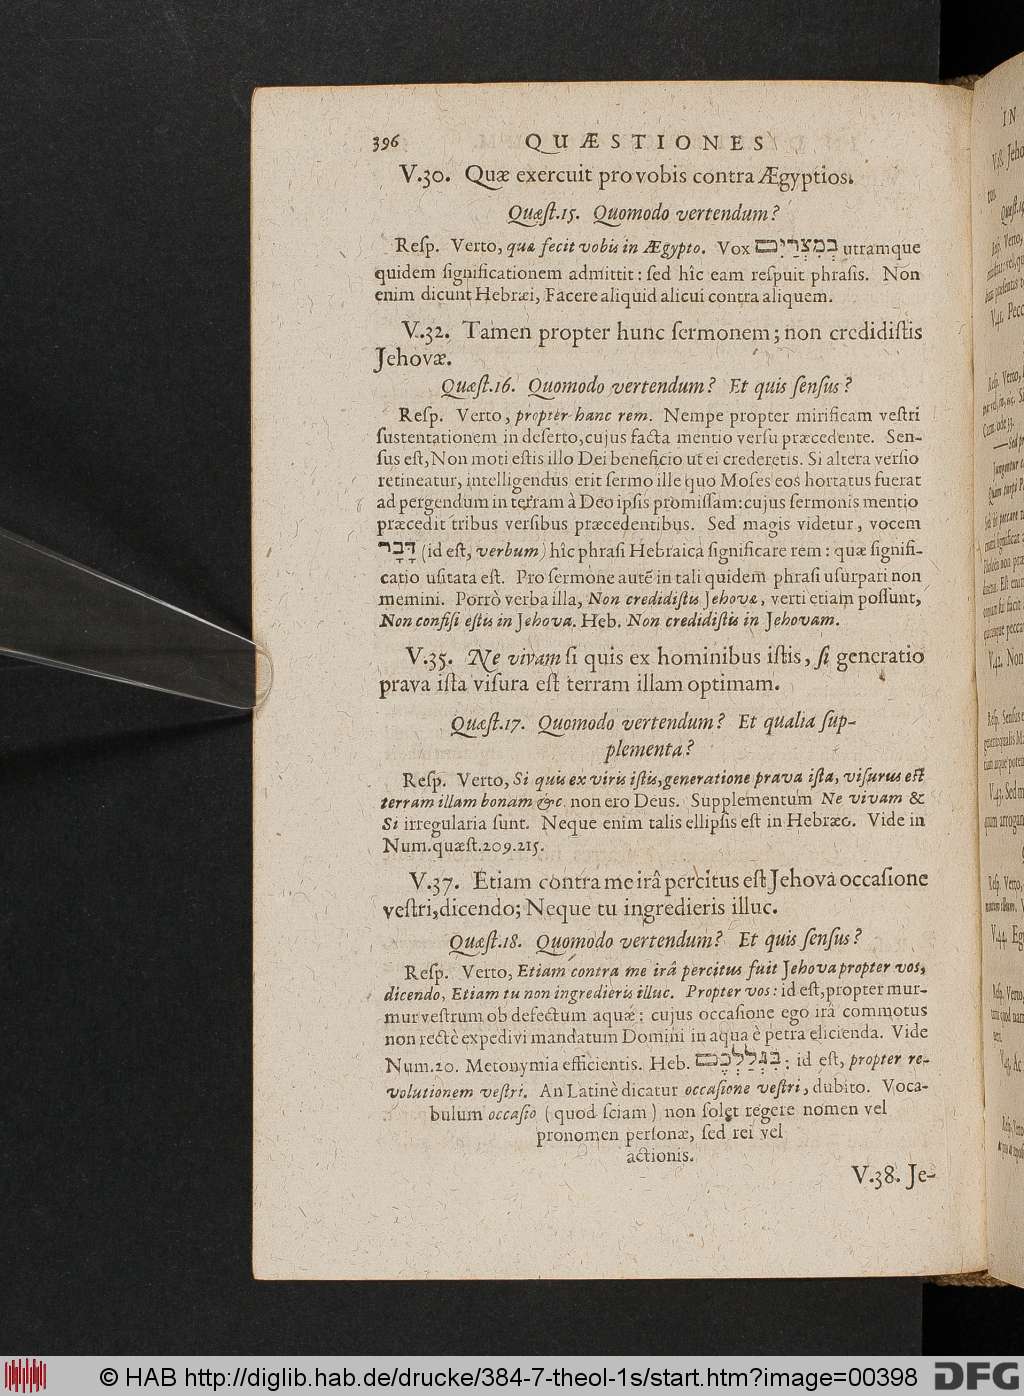 396 QUÆSTIONES
V.30. Quæ exercuit pro vobis contra Ægyptios.
Quæſt.15. Quomodo vertendum?
Reſp. Verto, quæ fecit vobis in Ægypto. Vox בְּמִצְרַיִם utramque
quidem ſignificationem admittit: ſed hîc eam reſpuit phraſis. Non
enim dicunt Hebræi, Facere aliquid alicui contra aliquem.
V.32. Tamen propter hunc ſermonem; non credidiſtis
Jehovæ.
Quæſt.16. Quomodo vertendum? Et quis ſenſus?
Reſp. Verto, propter hanc rem. Nempe propter mirificam veſtri
ſustentationem in deſerto, cujus facta mentio verſu præcedente. Sen-
ſus eſt, Non moti eſtis illo Dei beneficio ut ei crederetis. Si altera verſio
retineatur, intelligendus erit ſermo ille quo Moſes eos hortatus fuerat
ad pergendum in terram à Deo ipſis promiſſam: cujus ſermonis mentio
præcedit tribus verſibus præcedentibus. Sed magis videtur, vocem
דָּבָר (id eſt, verbum) hîc phraſi Hebraica ſignificare rem: quæ ſignifi-
catio uſitata eſt. Pro ſermone autē in tali quidem phraſi uſurpari non
memini. Porrò verba illa, Non credidiſtis Jehovæ, verti etiam poſſunt,
Non confiſi eſtis in Jehova. Heb. Non credidiſtis in Jehovam.
V.35. Ne vivam ſi quis ex hominibus iſtis, ſi generatio
prava iſta viſura eſt terram illam optimam.
Quæſt.17. Quomodo vertendum? Et qualia ſup-
plementa?
Reſp. Verto, Si quis ex viris iſtis, generatione prava iſta, viſurus eſt
terram illam bonam &c. non ero Deus. Supplementum Ne vivam &
Si irregularia ſunt. Neque enim talis ellipſis eſt in Hebræo. Vide in
Num.quæſt.209.215.
V.37. Etiam contra me irâ percitus eſt Jehova occaſione
veſtri, dicendo; Neque tu ingredieris illuc.
Quæſt.18. Quomodo vertendum? Et quis ſenſus?
Reſp. Verto, Etiam contra me irâ percitus fuit Jehova propter vos,
dicendo, Etiam tu non ingredieris illuc. Propter vos: id eſt, propter mur-
mur veſtrum ob defectum aquæ: cujus occaſione ego irâ commotus
non rectè expedivi mandatum Domini in aqua è petra elicienda. Vide
Num.20. Metonymia efficientis. Heb. בִּגְלַלְכֶם: id eſt, propter re-
volutionem veſtri. An Latinè dicatur occaſione veſtri, dubito. Voca-
bulum occaſio (quod ſciam) non ſolet regere nomen vel
pronomen perſonæ, ſed rei vel
actionis.
V.38. Je-
© HAB http://diglib.hab.de/drucke/384-7-theol-1s/start.htm?image=00398
DFG